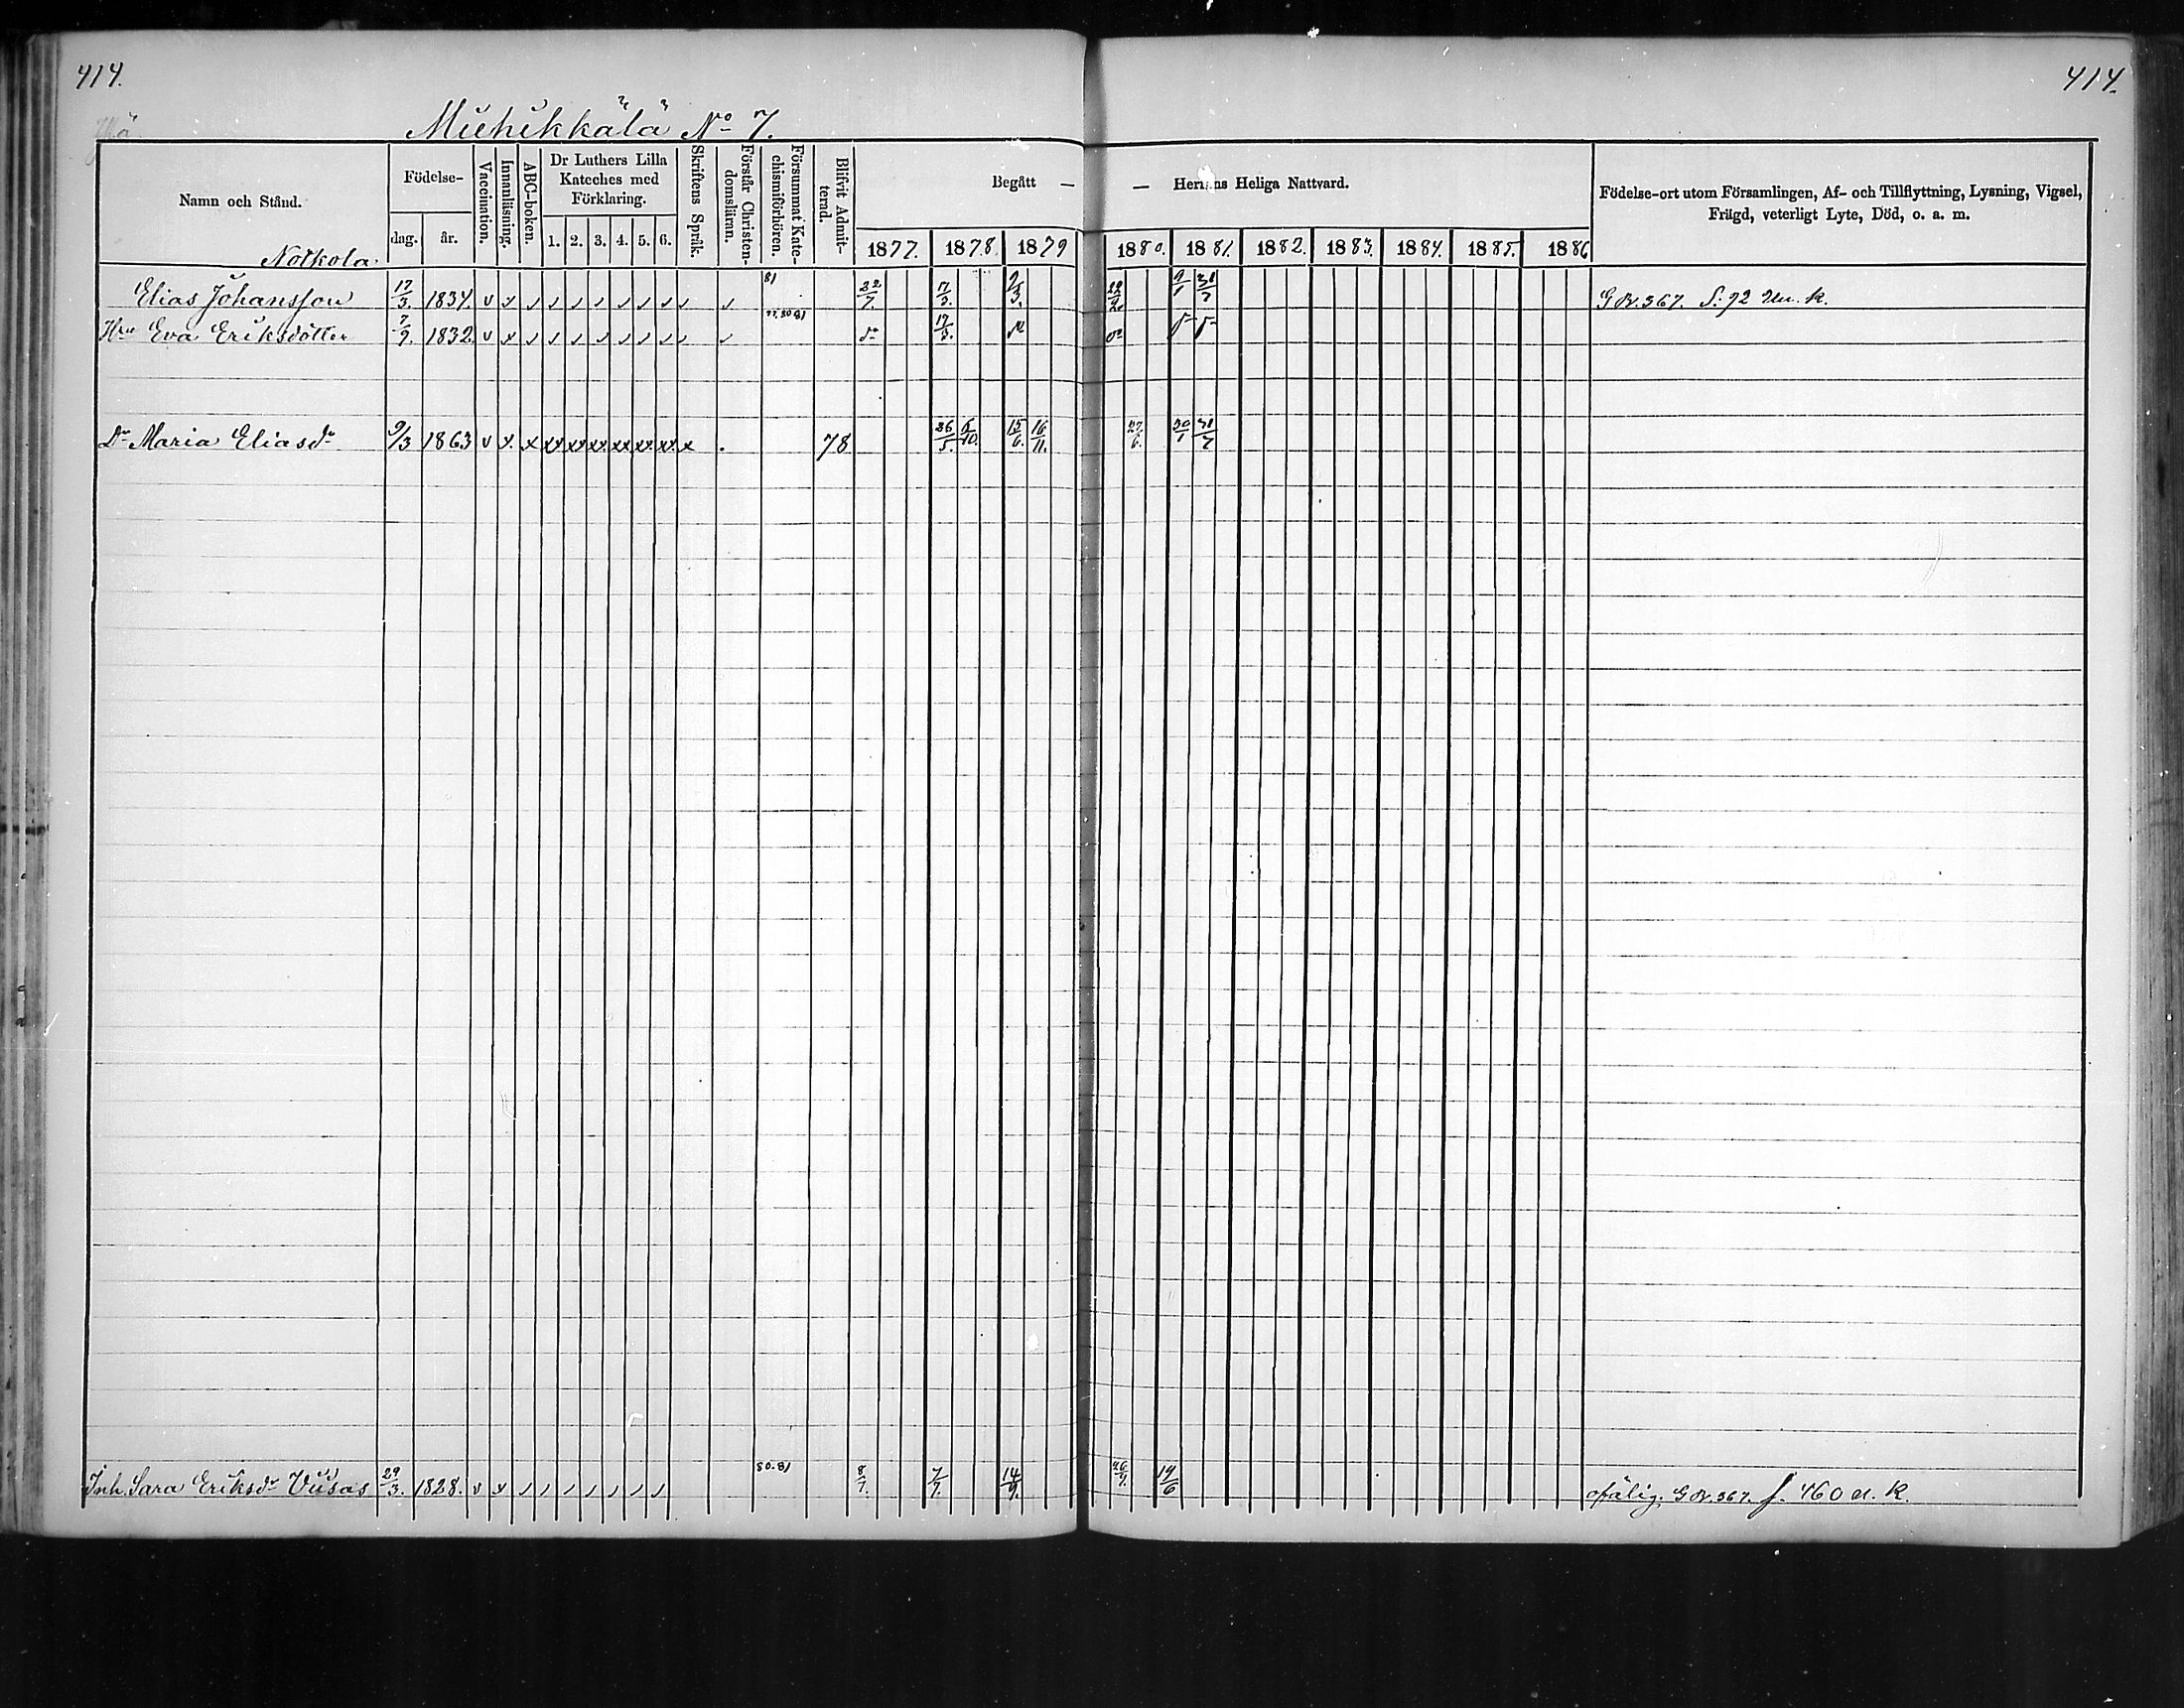 414. 414.
Muhikkälä No 7.
Namn och Stånd. Födelse- dag. år. Vaccination. Innanläsning. ABC-boken. Dr Luthers Lilla Kateches med Förklaring. 1. 2. 3. 4. 5. 6. Skriftens Språk. Förstår Christendomsläran. Försummat Katechismiförhören. Blifvit Admitterad. Begått — — Herrans Heliga Nattvard. 1877. 1878. 1879 1880. 1881. 1882. 1883. 1884. 1885. 1886 Födelse-ort utom Församlingen, Af- och Tillflyttning, Lysning, Vigsel, Frägd, veterligt Lyte, Död, o. a. m.
Notkola.
Elias Johansson 17/3. 1834. 81 22/7. 7/3. 2/3. 22/2. 9/1 31/7 G B. 367. S. 92 Un. k.
Hu Eva Eriksdotter 7/9. 1832. 77.80.81 do 17/3. do do
Dr Maria Eliasdr 9/3 1863 78 26/5. 6/10. 15/6. 16/11. 27/6. 30/1 31/7
Inh. Sara Eriksdr Uusas 29/3. 1828. 80.81 8/7. 7/7. 14/9. 26/9. 19/6 ofälig. G B. 367. f. 460 a. k.